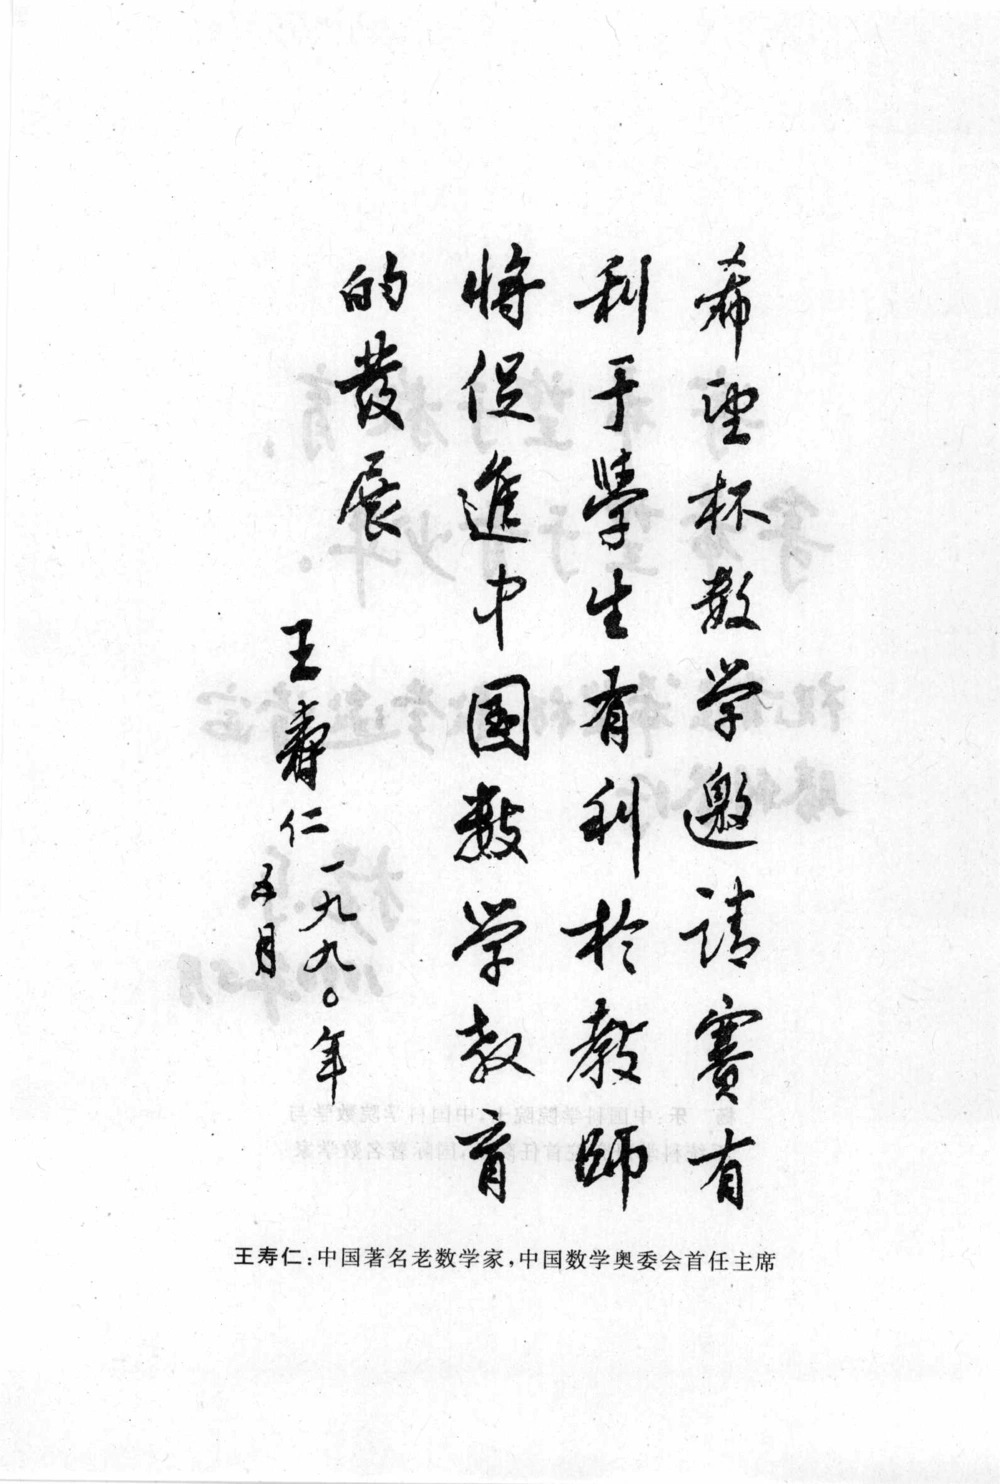 希望杯数学邀请赛有
利于學生有利於教師
将促進中国数学教育
的發展
王寿仁一九九〇年
五月
王寿仁:中国著名老数学家,中国数学奥委会首任主席